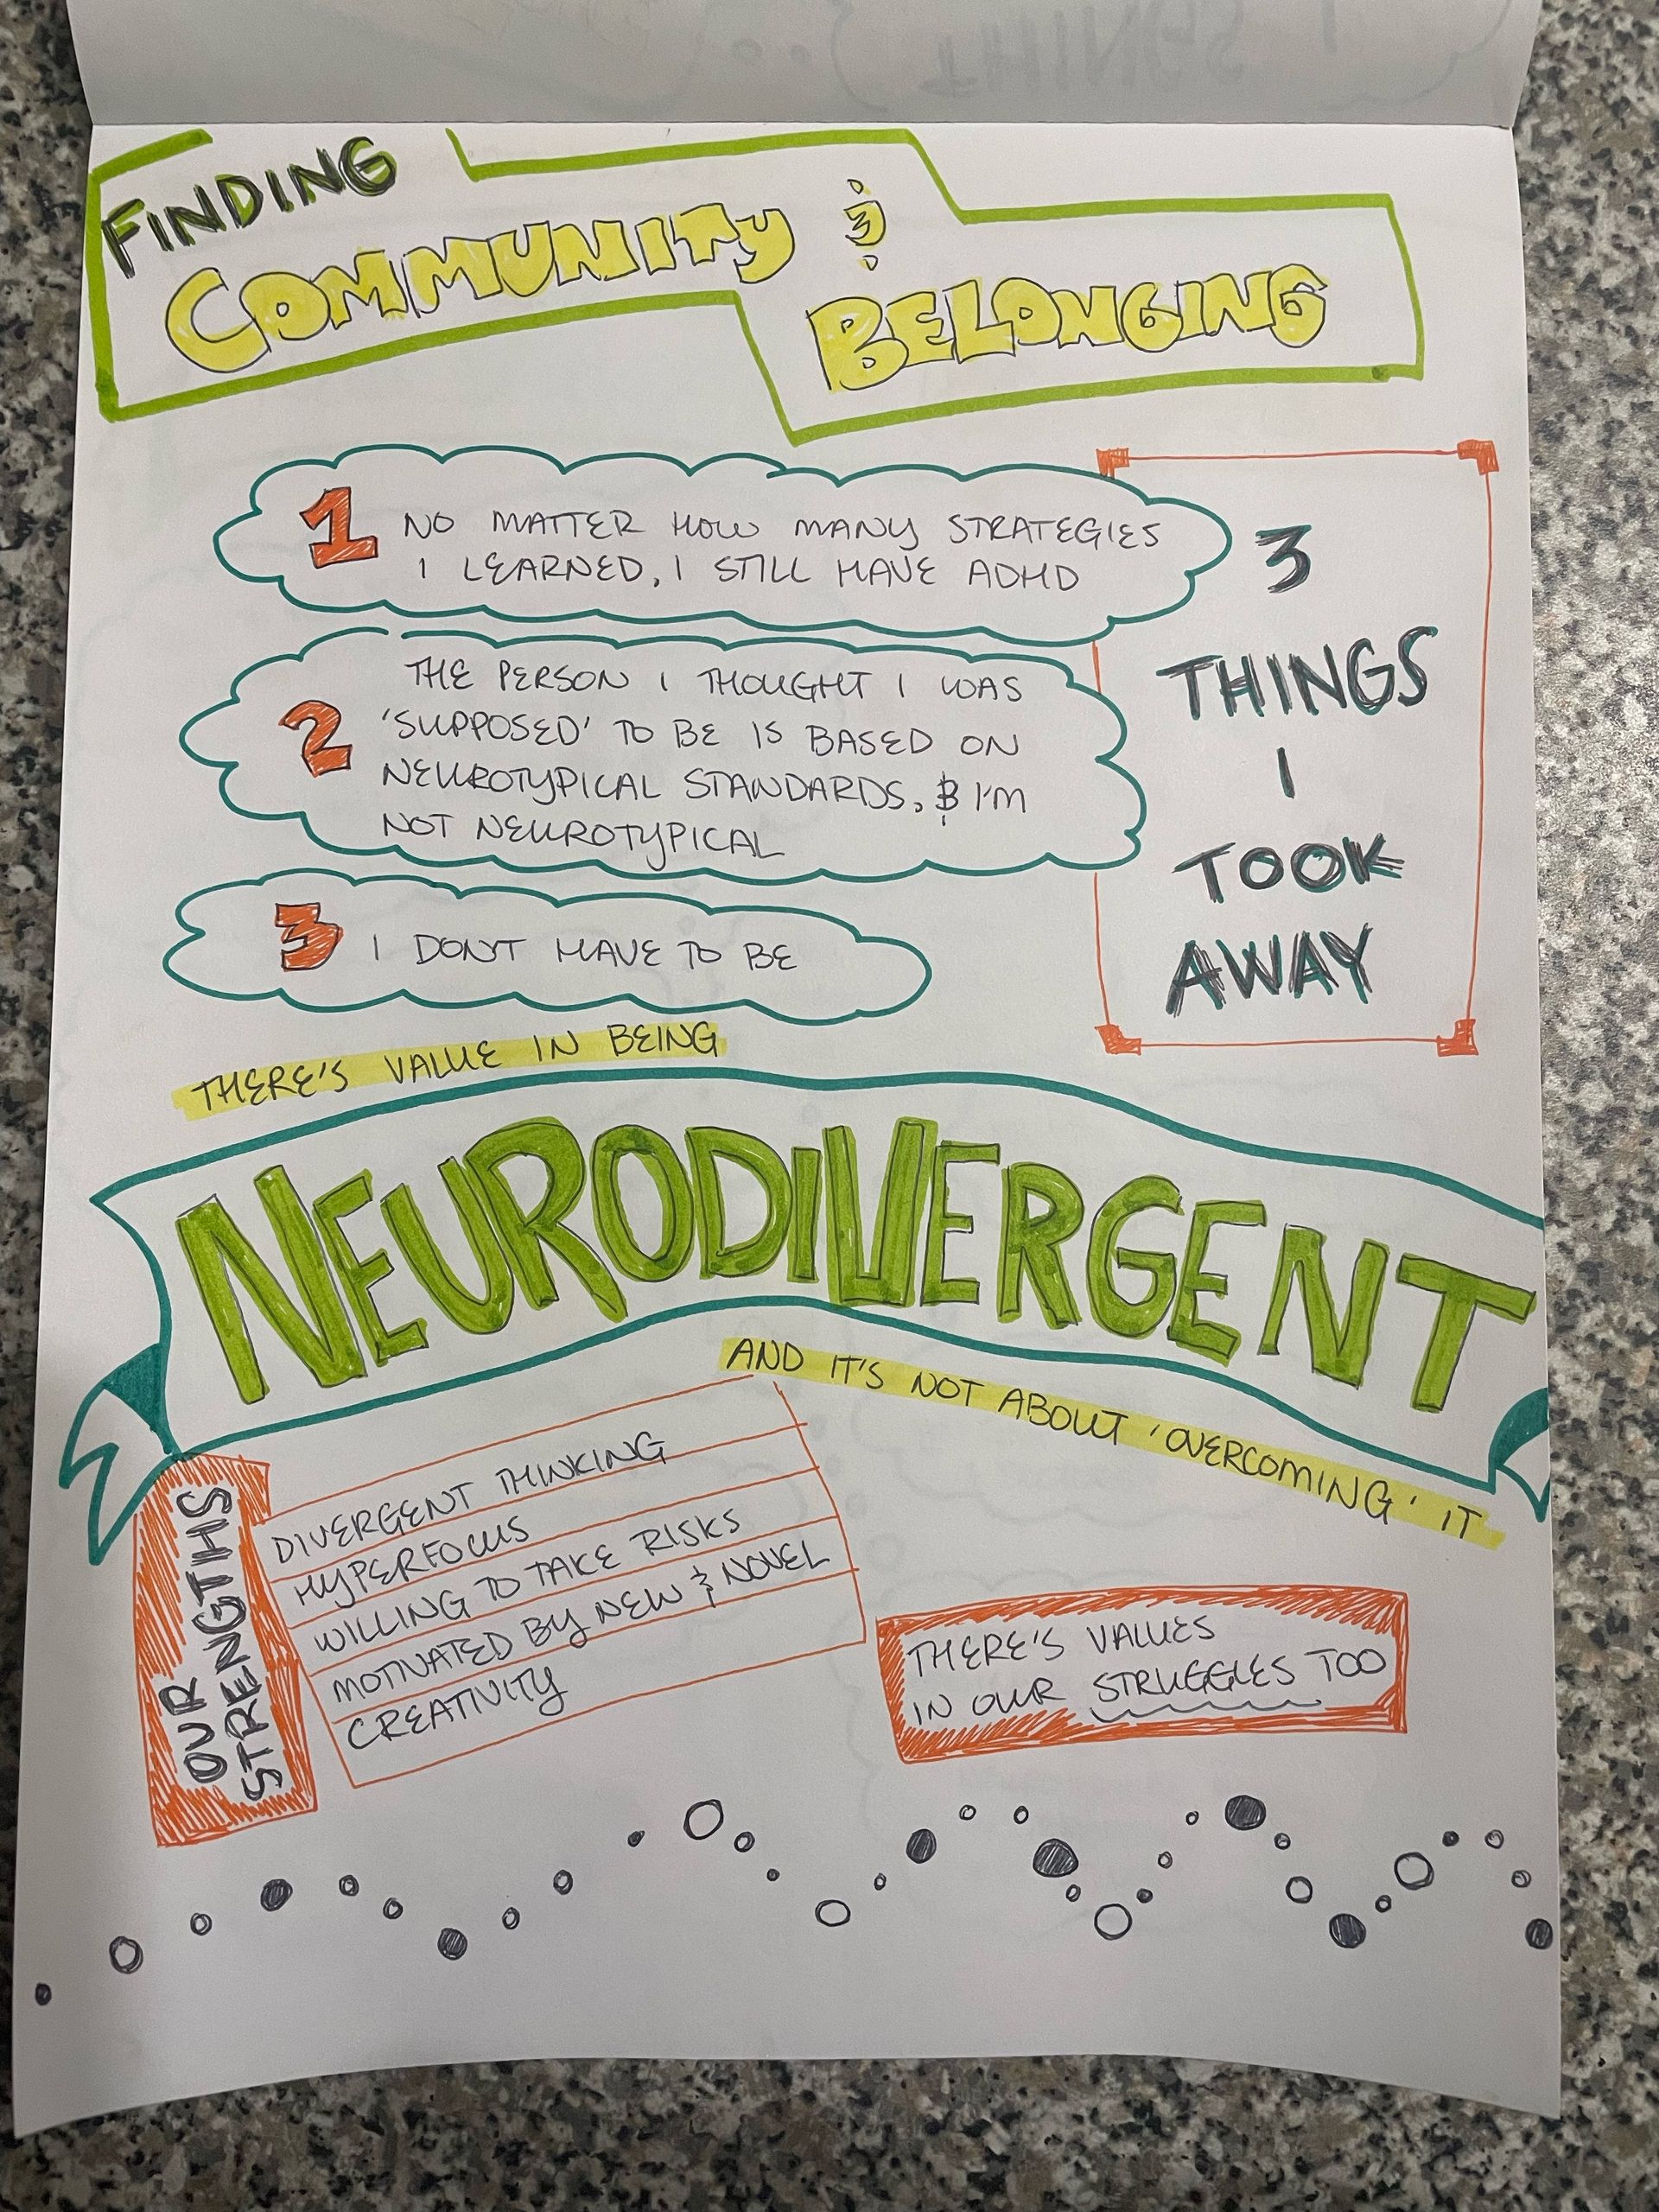 FINDING
COMMUNITY &
BELONGING
3
THINGS
I
TOOK
AWAY
1 NO MATTER HOW MANY STRATEGIES
I LEARNED, I STILL HAVE ADHD
2 THE PERSON I THOUGHT I WAS
'SUPPOSED' TO BE IS BASED ON
NEUROTYPICAL STANDARDS, & I'M
NOT NEUROTYPICAL
3 I DON'T HAVE TO BE
THERE'S VALUE IN BEING
NEURODIVERGENT
AND IT'S NOT ABOUT 'OVERCOMING' IT
OUR
STRENGTHS
DIVERGENT THINKING
HYPERFOCUS
WILLING TO TAKE RISKS
MOTIVATED BY NEW & NOVEL
CREATIVITY
THERE'S VALUES
IN OUR STRUGGLES TOO